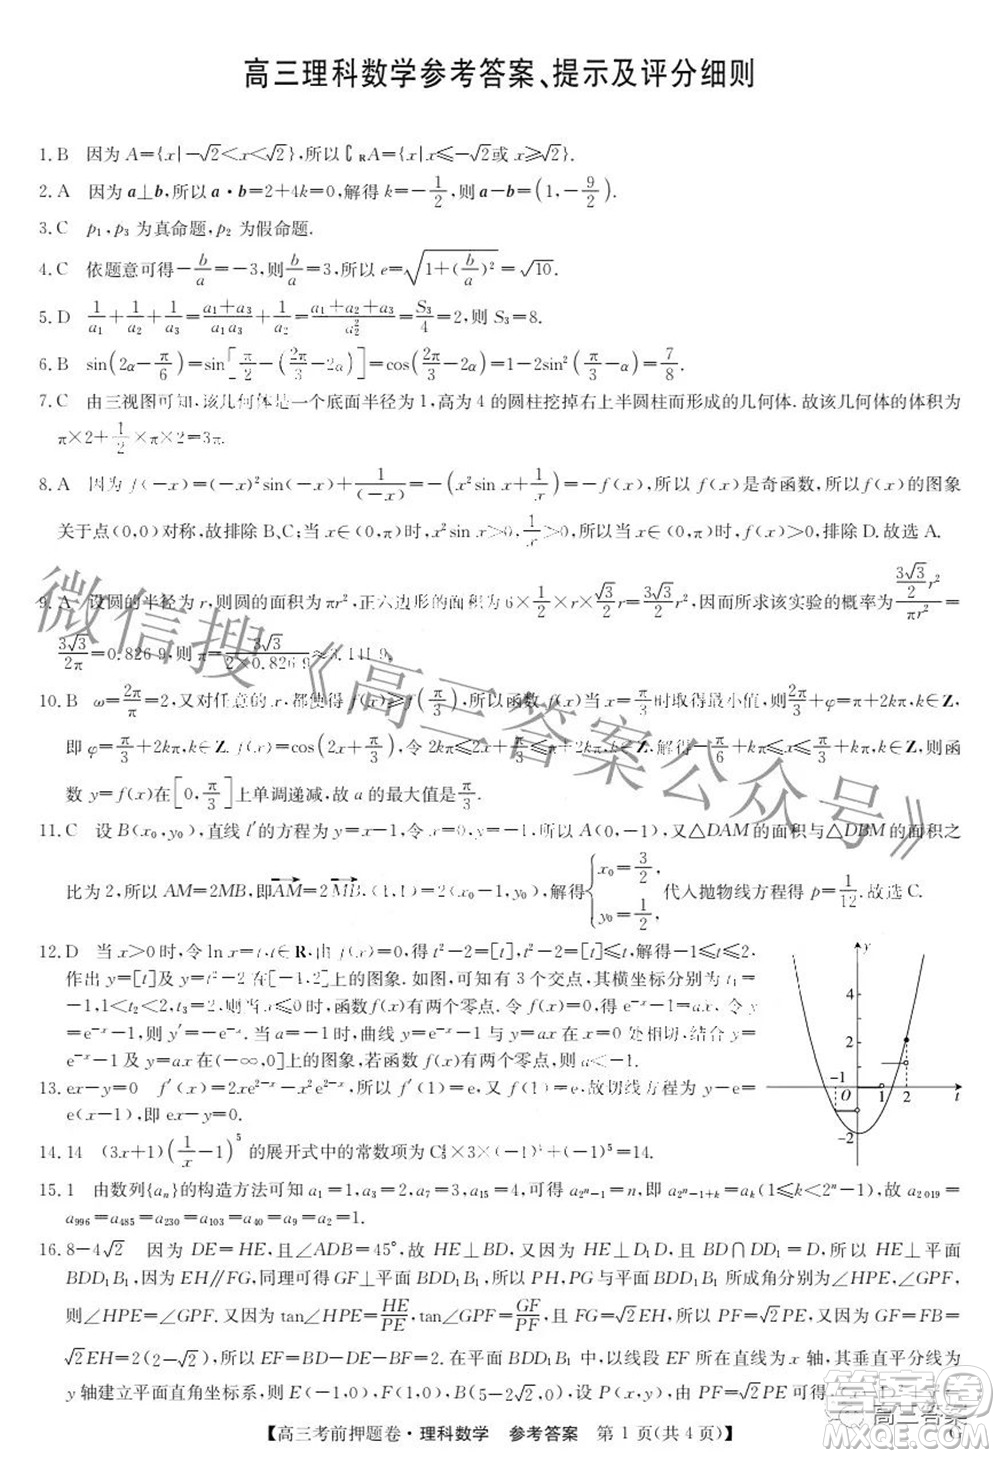 高三理科数学参考答案、提示及评分细则
1. B 因为 A={x|-√2<x<√2},所以 ∁RA={x|x≤-√2或 x≥√2}.
2. A 因为 a⊥b,所以 a·b=2+4k=0,解得 k=-1/2,则 a-b=(1,-9/2).
3. C p₁,p₃ 为真命题,p₂ 为假命题.
4. C 依题意可得-b/a=-3,则b/a=3,所以 e=√(1+(b/a)²)=√10.
5. D 1/a₁+1/a₂+1/a₃=(a₁+a₃)/(a₁a₃)+1/a₂=(a₁+a₂+a₃)/a₂²=S₃/4=2,则 S₃=8.
6. B sin(2α-π/6)=sin[π/2-(2π/3-2α)]=cos(2π/3-2α)=1-2sin²(π/3-α)=7/8.
7. C 由三视图可知,该几何体是一个底面半径为 1,高为 4 的圆柱挖掉右上半圆柱而形成的几何体.故该几何体的体积为
π×2+1/2×π×2=3π.
8. A 因为 f(-x)=(-x)²sin(-x)+1/(-x)=-(x²sin x+1/x)=-f(x),所以 f(x)是奇函数,所以 f(x)的图象
关于点(0,0)对称,故排除 B、C;当 x∈(0,π)时,x²sin x>0,1/x>0,所以当 x∈(0,π)时,f(x)>0,排除 D.故选 A.
9. A 设圆的半径为 r,则圆的面积为πr²,正六边形的面积为 6×1/2×r×√3/2 r=3√3/2 r²,因而所求该实验的概率为 (3√3/2 r²)/(πr²)=
3√3/2π=0.826 9,则π=3√3/(2×0.826 9)≈3.141 9.
10. B ω=2π/π=2,又对任意的 x,都使得 f(x)≥f(π/3),所以函数 f(x)在 x=π/3时取得最小值,则2π/3+φ=π+2kπ,k∈Z,
即 φ=π/3+2kπ,k∈Z.f(x)=cos(2x+π/3),令 2kπ≤2x+π/3≤π+2kπ,解得-π/6+kπ≤x≤π/3+kπ,k∈Z,则函
数 y=f(x)在[0,π/3]上单调递减,故 a 的最大值是π/3.
11. C 设 B(x₀,y₀),直线 l′的方程为 y=x-1,令 x=0,得 y=-1,所以 A(0,-1),又△DAM 的面积与△DBM 的面积之
比为 2,所以 AM=2MB,即AM=2MB.(1,1)=2(x₀-1,y₀),解得{x₀=3/2, y₀=1/2,代入抛物线方程得 p=1/12.故选 C.
12. D 当 x>0 时,令 ln x=t,t∈R,由 f(x)=0,得 t²-2=[t],t²-2=[t]≤t,解得-1≤t≤2,
作出 y=[t],y=t²-2,t∈[-1,2]上的图象.如图,可知有 3 个交点,其横坐标分别为 t₁=
-1,1<t₂<2,t₃=2,则当 x≤0 时,函数 f(x)有两个零点.令 f(x)=0,得 e⁻ˣ-1=ax,令 y
=e⁻ˣ-1,则 y′=-e⁻ˣ,当 a=-1 时,曲线 y=e⁻ˣ-1 与 y=ax 在 x=0 处相切.结合 y=
e⁻ˣ-1 与 y=ax 在(-∞,0]上的图象,若函数 f(x)有两个零点,则 a<-1.
13. ex-y=0 f′(x)=2xe²⁻ˣ-x²e²⁻ˣ,所以 f′(1)=e,又 f(1)=e,故切线方程为 y-e=
e(x-1),即 ex-y=0.
14. 14 (3x+1)(1/x-1)⁵的展开式中的常数项为 C₅⁴×3×(-1)⁴+(-1)⁵=14.
15. 1 由数列{aₙ}的构造方法可知 a₁=1,a₃=2,a₇=3,a₁₅=4,可得 a₂ⁿ₋₁=n,即 a₂ⁿ₋₁₊ₖ=aₖ(1≤k<2ⁿ-1),故 a₂ ₀₁₉=
a₉₉₆=a₄₈₅=a₂₃₀=a₁₀₃=a₄₀=a₉=a₂=1.
16. 8-4√2 因为 DE=HE,且∠ADB=45°,故 HE⊥BD,又因为 HE⊥DD₁,且 BD∩DD₁=D,所以 HE⊥平面
BDD₁B₁,因为 EH∥FG,同理可得 GF⊥平面 BDD₁B₁,所以 PH,PG 与平面 BDD₁B₁ 所成角分别为∠HPE,∠GPF,
则∠HPE=∠GPF.又因为 tan∠HPE=HE/PE,tan∠GPF=GF/PF,且 FG=√2EH,所以 PF=√2PE.又因为 GF=FB=
√2EH=2(2-√2),所以 EF=BD-DE-BF=2.在平面 BDD₁B₁ 中,以线段 EF 所在直线为 x 轴,其垂直平分线为
y 轴建立平面直角坐标系,则 E(-1,0),F(1,0),B(5-2√2,0),设 P(x,y),由 PF=√2PE,
y
4
2
-1
O
1
2
t
-2
【高三考前押题卷·理科数学 参考答案 第 1 页(共 4 页)】
G
微信搜《高三答案公众号》
高三答案
答案圈
MXQE.COM